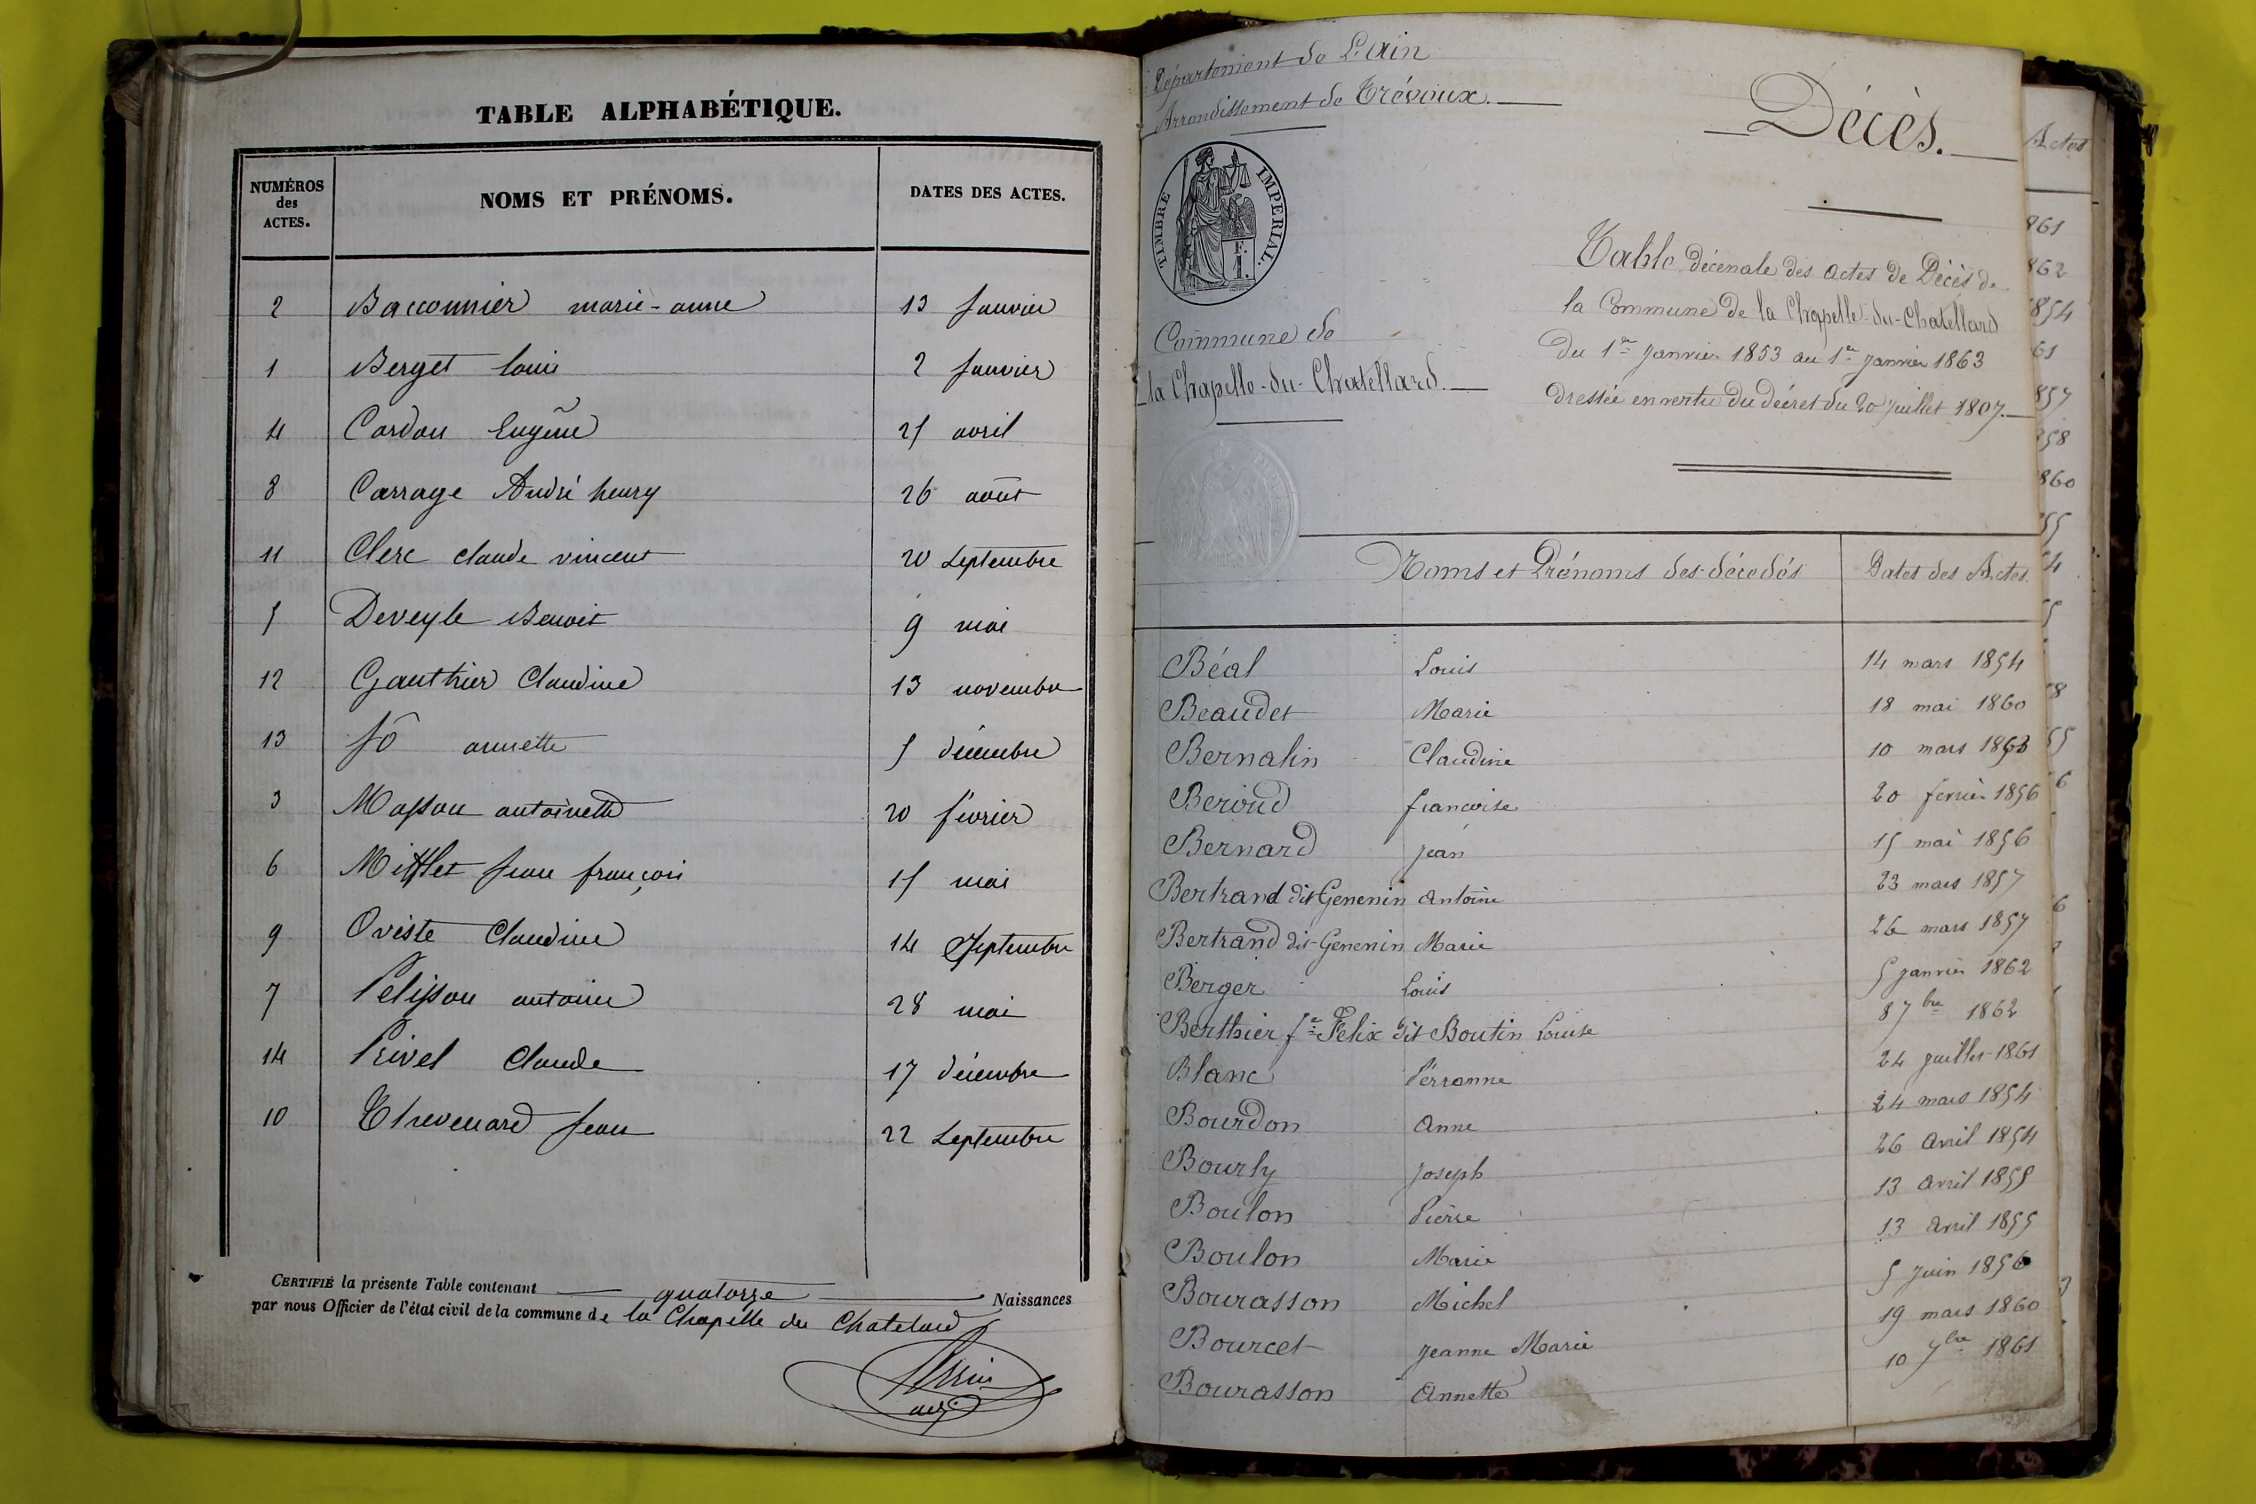 TABLE ALPHABÉTIQUE.
NUMÉROS des ACTES. NOMS ET PRÉNOMS. DATES DES ACTES.
2 Bacconnier marie-anne 13 Janvier
1 Berget louis 2 Janvier
4 Cardon Eugène 21 avril
8 Carrage André henry 26 août
11 Clerc claude vincent 20 Septembre
5 Deveyle Benoit 9 mai
12 Gauthier Claudine 13 novembre
13 annette 5 décembre
3 Masson antoinette 20 février
6 Jean françois 15 mai
9 Oviste Claudine 14 Septembre
7 Pelisson antoine 28 mai
14 Privel Claude 17 décembre
10 Thevenard Jean 22 Septembre
CERTIFIÉ la présente Table contenant quatorze Naissances
par nous Officier de l'état civil de la commune de la Chapelle du Chatelard
Département de L'Ain
Arrondissement de Trévoux.
Décès.
TIMBRE IMPERIAL.
F. 1.
Commune de
la Chapelle-du-Chatellard.
Table décenale des actes de Décès de
la Commune de la Chapelle-du-Chatellard
Du 1er Janvier 1853 au 1er Janvier 1863
dressée en vertu du décret du 20 Juillet 1807.
Noms et Prénoms des décedés Dates des Actes.
Béal Louis 14 mars 1854
Beaudet Marie 18 mai 1860
Bernalin Claudine 10 mars
Beroud francoise 20 fevrier 1856
Bernard Jean 15 mai 1856
Bertrand dit Genenin Antoine 23 mars 1857
Bertrand dit-Genenin Marie 26 mars 1857
Berger Louis 5 janvier 1862
Berthier fe Felix dit Boutin Louise 8 7bre 1862
Blanc Pérronne 24 juillet 1861
Bourdon Anne 24 mars 1854
Bourly Joseph 26 Avril 1854
Boulon Pierre 13 Avril 1855
Boulon Marie 13 Avril 1855
Bourasson Michel 5 Juin 1856
Bourcet Jeanne Marie 19 mars 1860
Bourasson Annette 10 7bre 1861
Actes
861
862
1854
61
857
858
860
55